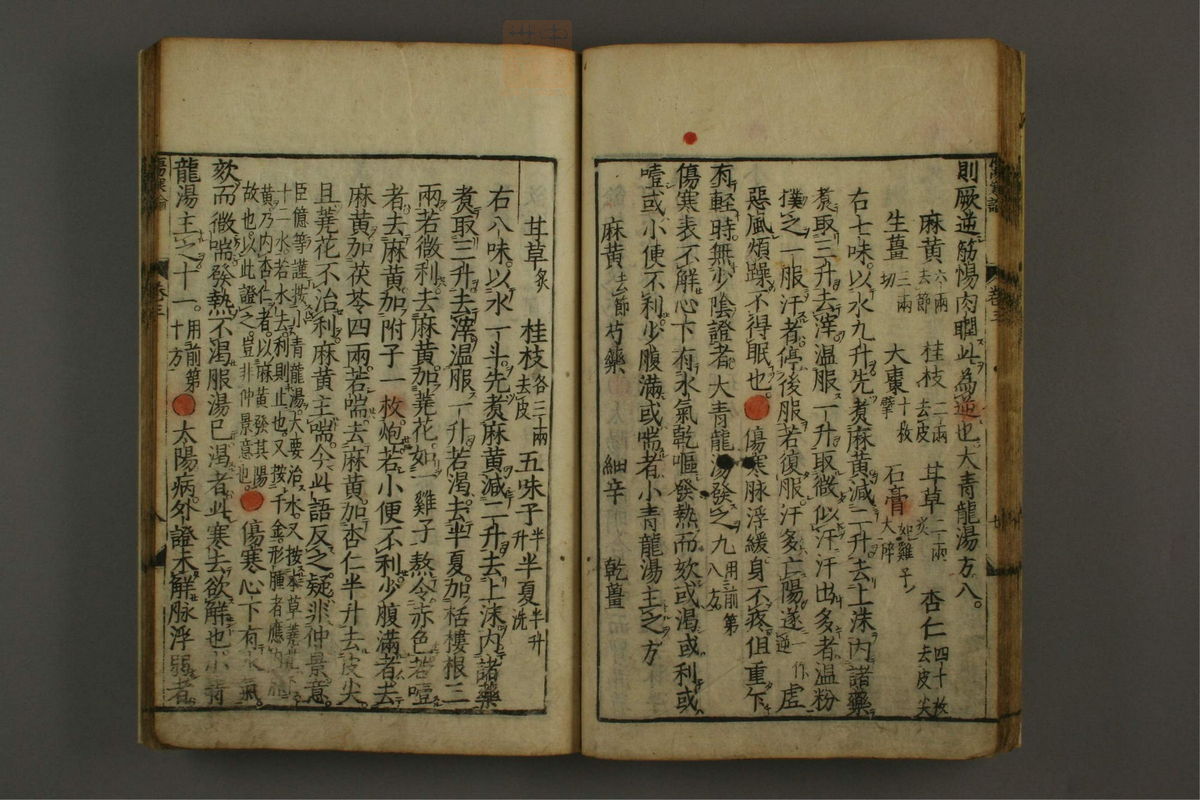 則厥逆筋惕肉瞤此為逆也大青龍湯方八。
麻黄六兩去節 桂枝二兩去皮 甘草二兩炙 杏仁四十枚去皮尖
生薑三兩切 大棗十枚擘 石膏如雞子大碎
右七味。以水九升先煮麻黄減二升去上沫内諸藥
煮取三升去滓温服一升取微似汗汗出多者温粉
撲之一服汗者停後服若復服。汗多亡陽遂一作逆虚
惡風煩躁不得眠也。傷寒脉浮緩身不疼但重乍
有輕時。無少陰證者大青龍湯發之九用前第八方
傷寒表不解心下有水氣乾嘔發熱而欬或渴或利或
噎或小便不利少腹滿或喘者小青龍湯主之方
麻黄去節 芍藥 細辛 乾薑
甘草炙 桂枝各三兩去皮 五味子半升 半夏半升洗
右八味。以水一斗先煮麻黄減二升去上沫内諸藥
煮取三升去滓温服一升若渴去半夏。加栝樓根三
兩若微利。去麻黄。加蕘花。如一雞子熬令赤色若噎
者去麻黄加附子一枚炮若小便不利少腹滿者去
麻黄加茯苓四兩若喘去麻黄。加杏仁半升去皮尖
且蕘花不治利麻黄主喘。今此語反之疑非仲景意。
臣億等謹按小青龍湯。大要治水。又按本草蕘花下
十二水若水去。利則止也。又按千金形腫者應内麻
黄乃内杏仁者。以麻黄發其陽
故也。以此證之。豈非仲景意也。傷寒心下有水氣
欬而微喘發熱不渴服湯已渴者此寒去欲解也小青
龍湯主之。十一。用前第十方太陽病。外證未解脉浮弱者。
傷寒論 卷三